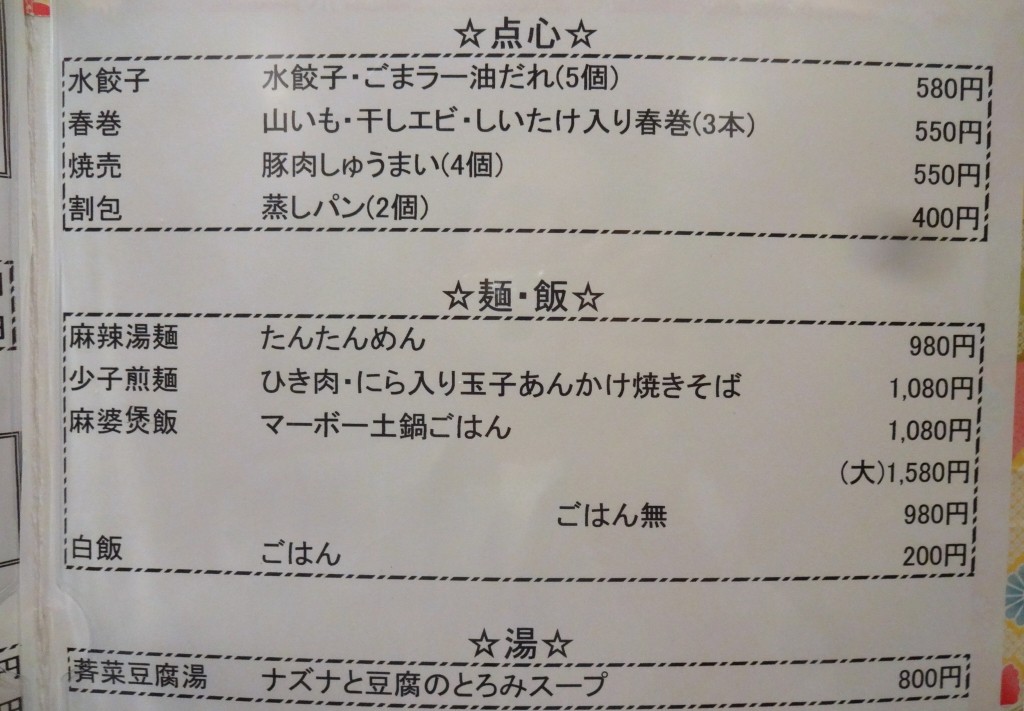 ☆点心☆
水餃子 水餃子・ごまラー油だれ(5個) 580円
春巻 山いも・干しエビ・しいたけ入り春巻(3本) 550円
焼売 豚肉しゅうまい(4個) 550円
割包 蒸しパン(2個) 400円
☆麺・飯☆
麻辣湯麺 たんたんめん 980円
少子煎麺 ひき肉・にら入り玉子あんかけ焼きそば 1,080円
麻婆煲飯 マーボー土鍋ごはん 1,080円
(大)1,580円
ごはん無 980円
白飯 ごはん 200円
☆湯☆
薺菜豆腐湯 ナズナと豆腐のとろみスープ 800円